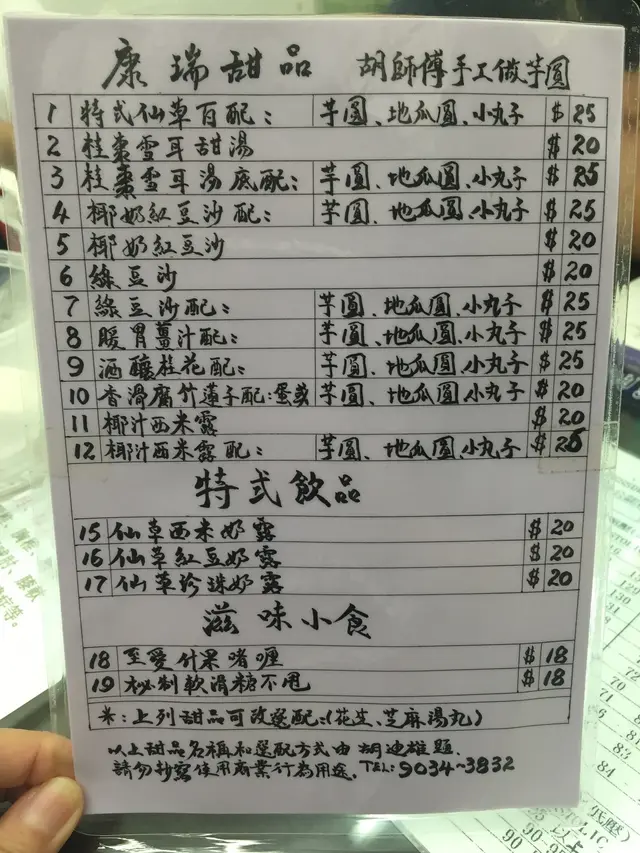 康瑞甜品 胡師傅手工做芋圓
1 特式仙草百配: 芋圓、地瓜圓、小丸子 $25
2 桂棗雪耳甜湯 $20
3 桂棗雪耳湯底配: 芋圓、地瓜圓、小丸子 $25
4 椰奶紅豆沙配: 芋圓、地瓜圓、小丸子 $25
5 椰奶紅豆沙 $20
6 綠豆沙 $20
7 綠豆沙配: 芋圓、地瓜圓、小丸子 $25
8 暖胃薑汁配: 芋圓、地瓜圓、小丸子 $25
9 酒釀桂花配: 芋圓、地瓜圓、小丸子 $25
10 香滑腐竹蓮子配:蛋或 芋圓、地瓜圓、小丸子 $20
11 椰汁西米露 $20
12 椰汁西米露配: 芋圓、地瓜圓、小丸子 $25
特式飲品
15 仙草西米奶露 $20
16 仙草紅豆奶露 $20
17 仙草珍珠奶露 $20
滋味小食
18 至愛什果啫喱 $18
19 秘制軟滑糖不甩 $18
*:上列甜品可改選配:(花生、芝麻湯丸)
以上甜品名稱和選配方式由胡迪雄題.
請勿抄寫使用商業行為用途. TEL: 9034-3832